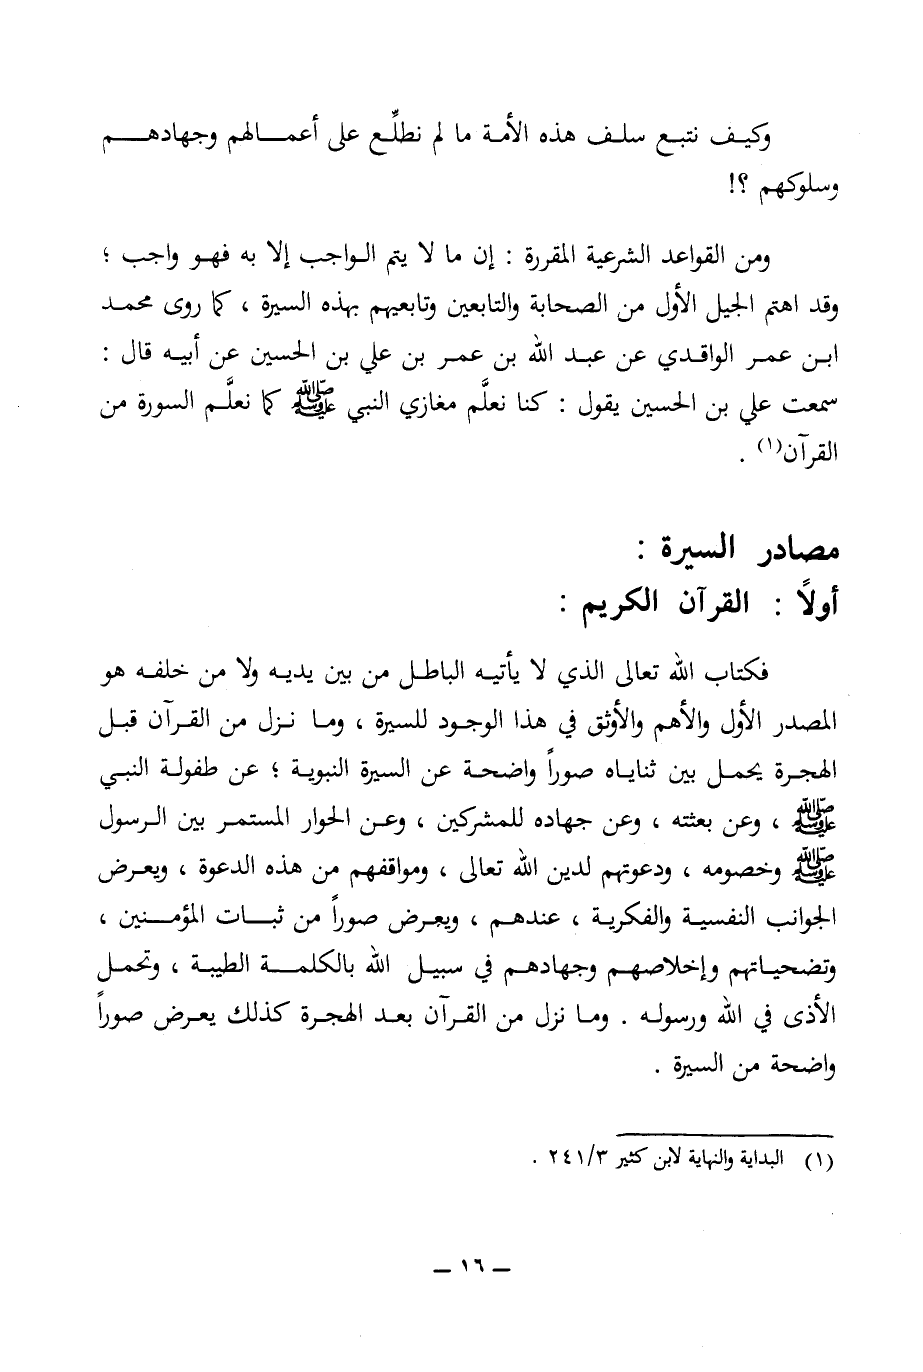 وكيف نتبع سلف هذه الأمة ما لم نطلِّع على أعمالهم وجهادهم
وسلوكهم ؟!
ومن القواعد الشرعية المقررة : إن ما لا يتم الواجب إلا به فهو واجب ؛
وقد اهتم الجيل الأول من الصحابة والتابعين وتابعيهم بهذه السيرة ، كما روى محمد
ابن عمر الواقدي عن عبد الله بن عمر بن علي بن الحسين عن أبيه قال :
سمعت علي بن الحسين يقول : كنا نعلَّم مغازي النبي ﷺ كما نعلَّم السورة من
القرآن(١) .
مصادر السيرة :
أولاً : القرآن الكريم :
فكتاب الله تعالى الذي لا يأتيه الباطل من بين يديه ولا من خلفه هو
المصدر الأول والأهم والأوثق في هذا الوجود للسيرة ، وما نزل من القرآن قبل
الهجرة يحمل بين ثناياه صوراً واضحة عن السيرة النبوية ؛ عن طفولة النبي
ﷺ ، وعن بعثته ، وعن جهاده للمشركين ، وعن الحوار المستمر بين الرسول
ﷺ وخصومه ، ودعوتهم لدين الله تعالى ، ومواقفهم من هذه الدعوة ، ويعرض
الجوانب النفسية والفكرية ، عندهم ، ويعرض صوراً من ثبات المؤمنين ،
وتضحياتهم وإخلاصهم وجهادهم في سبيل الله بالكلمة الطيبة ، وتحمل
الأذى في الله ورسوله . وما نزل من القرآن بعد الهجرة كذلك يعرض صوراً
واضحة من السيرة .
(١) البداية والنهاية لابن كثير ٢٤١/٣ .
— ١٦ —